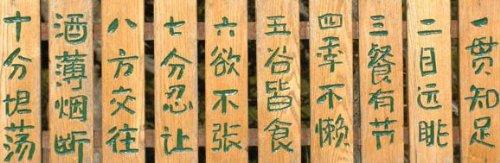 一贯知足
二目远眺
三餐有节
四季不懒
五谷皆食
六欲不张
七分忍让
八方交往
酒薄烟断
十分坦荡